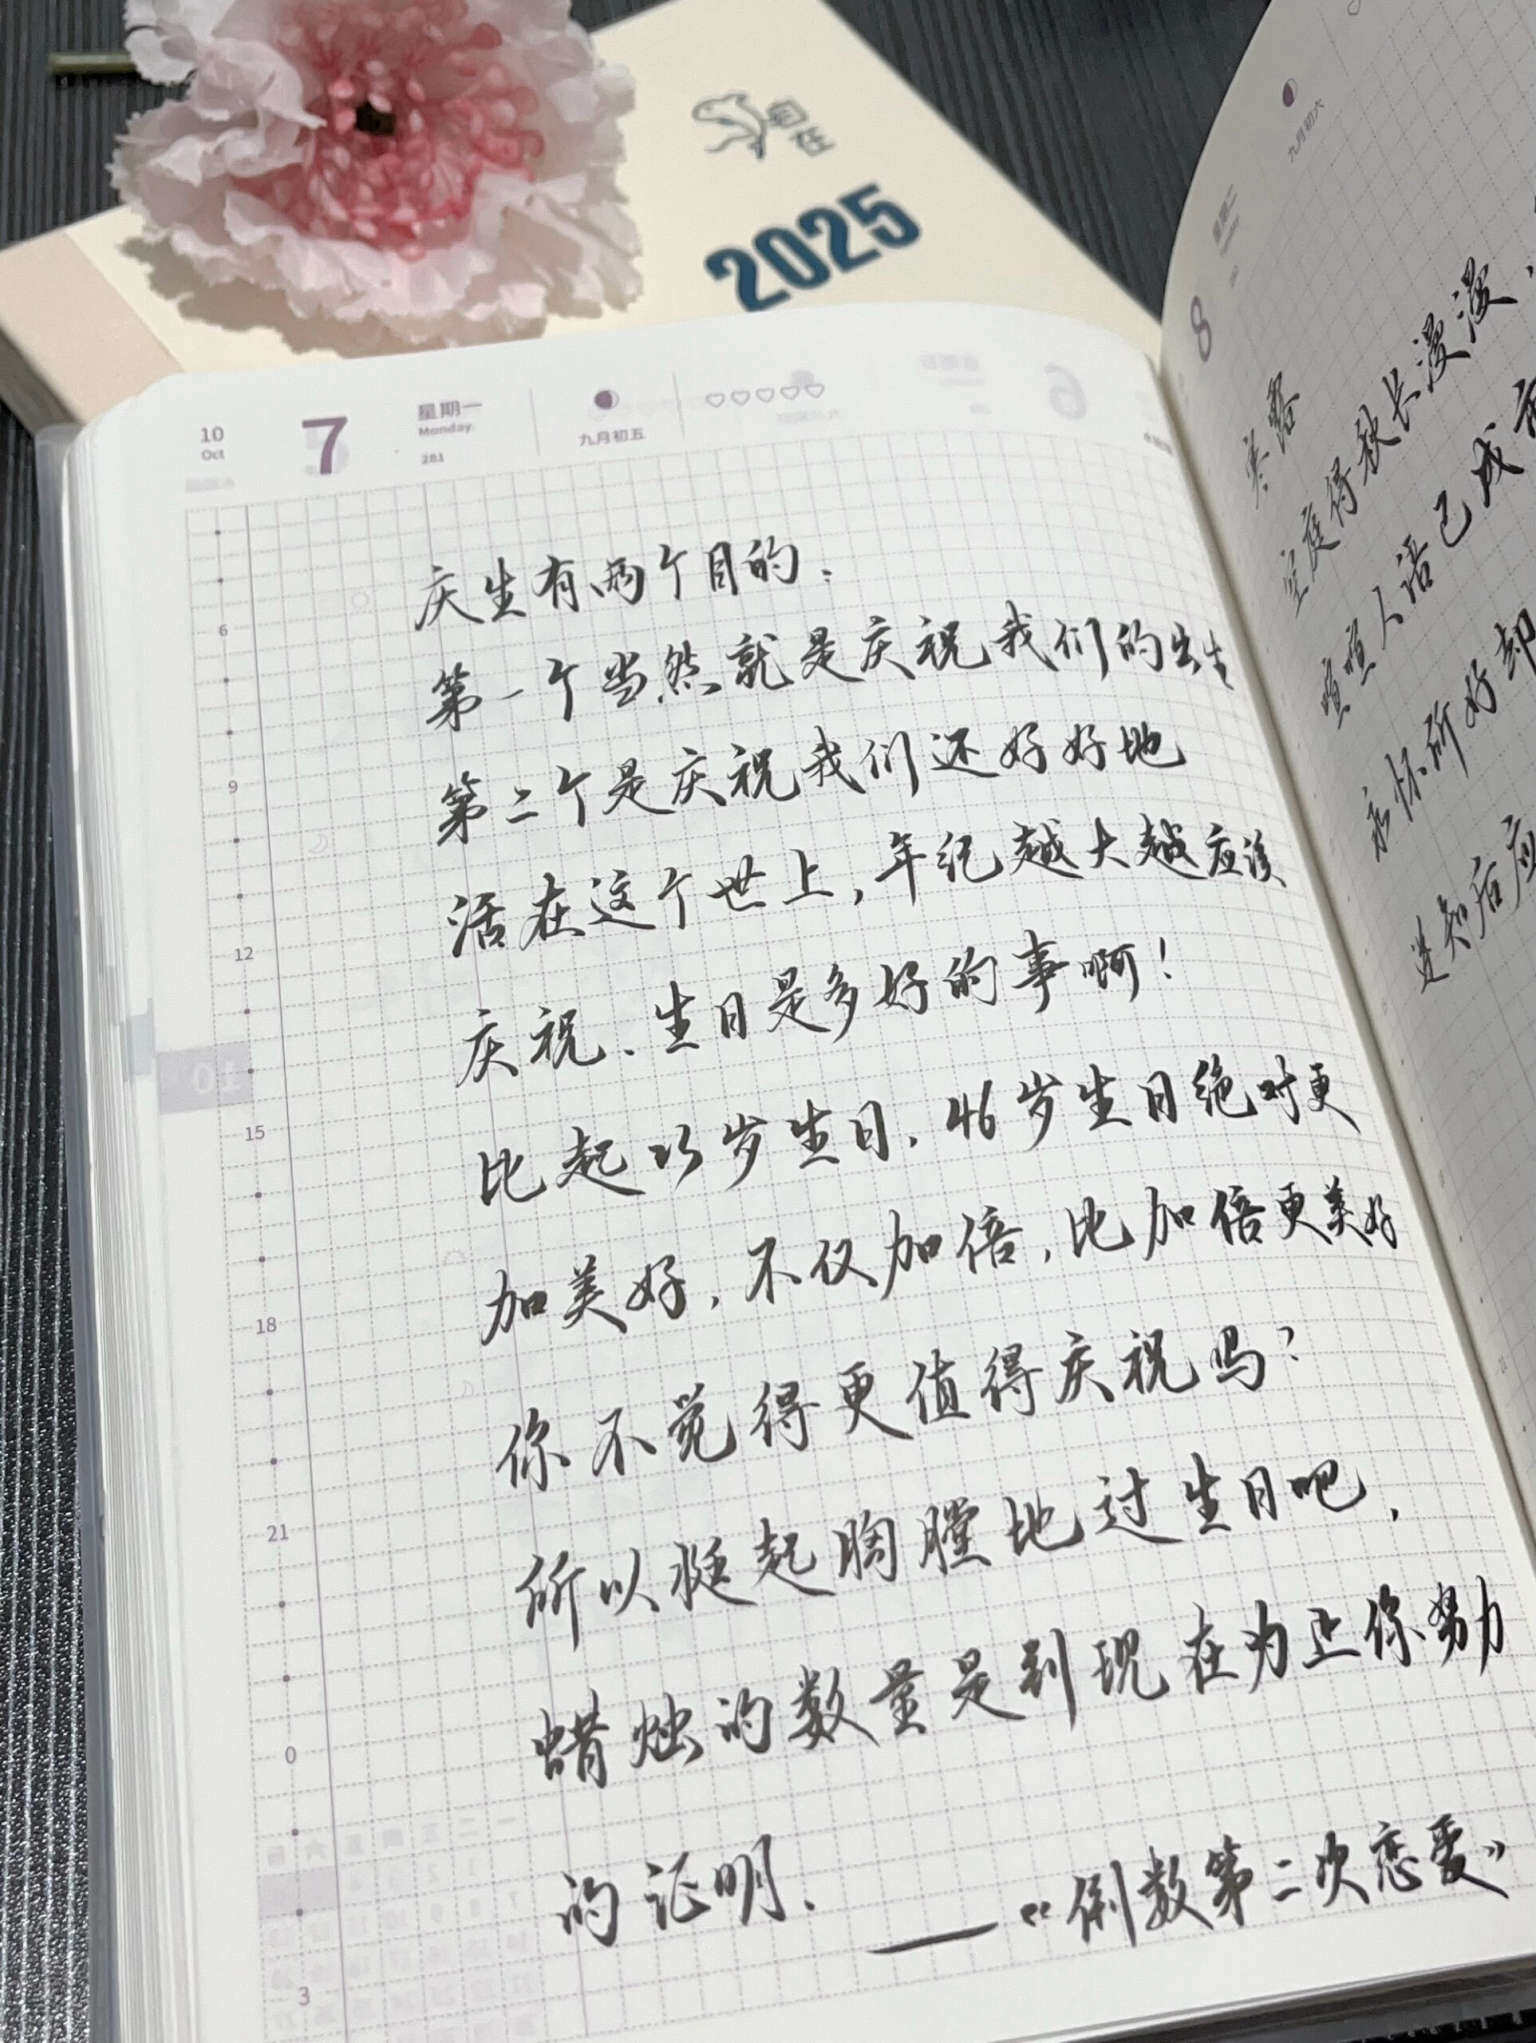 自在
2025
10
Oct
7
星期一
Monday
281
九月初五
庆生有两个目的.
第一个当然就是庆祝我们的出生
第二个是庆祝我们还好好地
活在这个世上,年纪越大越应该
庆祝.生日是多好的事啊!
比起23岁生日,46岁生日绝对更
加美好,不仅加倍,比加倍更美好
你不觉得更值得庆祝吗?
所以挺起胸膛地过生日吧,
蜡烛的数量是到现在为止你努力
的证明.
——《倒数第二次恋爱》
6
9
12
15
18
21
0
3
01
8
九月初六
寒露
空庭得秋长漫漫,
喧喧人语已成
永怀所好却